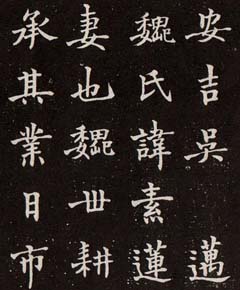 安吉吳　邁
魏氏諱素蓮
妻也魏丗耕
承其業日市